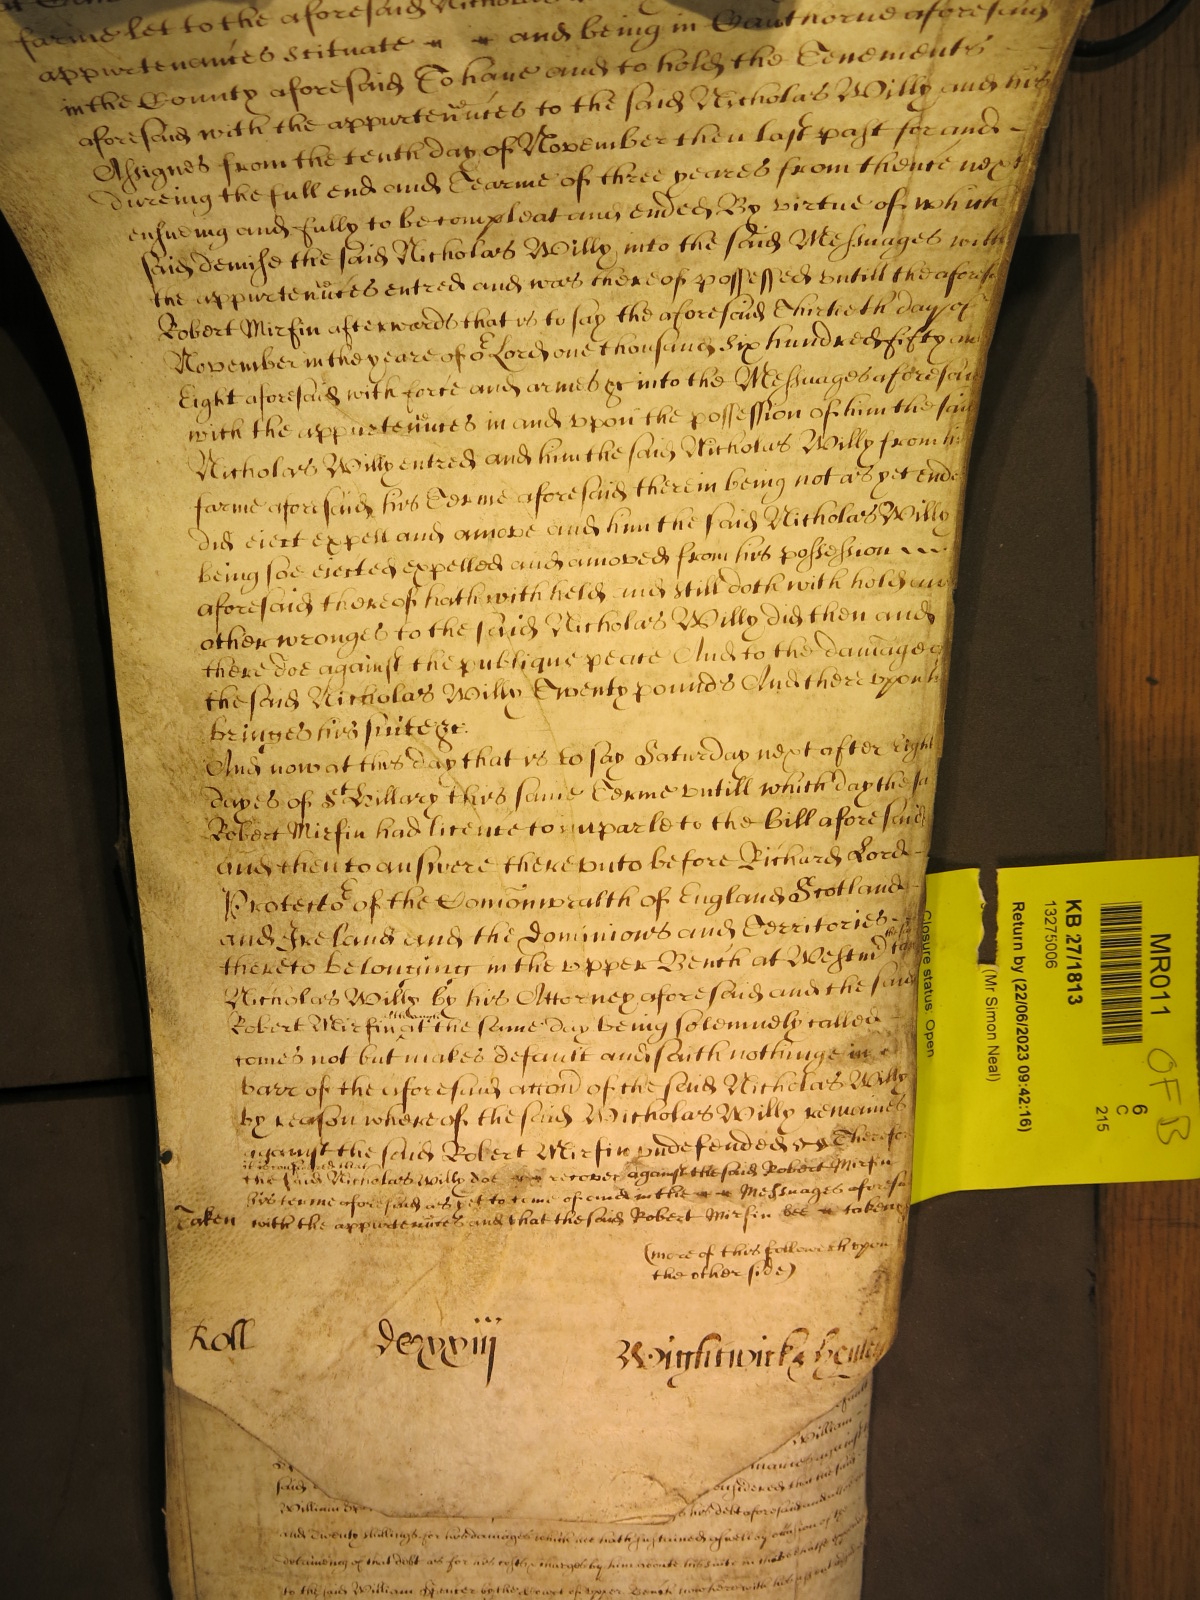 farme let to the aforesaid Nicholas
appurtenances scituate and being in Cawthorne aforesaid
in the County aforesaid To have and to hold the Tenements
aforesaid with the appurtenn̄ces to the said Nicholas Willy and his
Assignes from the tenth day of November then last past for and
dureing the full end and Tearme of three yeares from thence next
ensueing and fully to be compleat and ended By virtue of which
said demise the said Nicholas Willy into the said Messuages with
the appurtenn̄ces entred and was thereof possessed untill the afores
Robert Mirfin afterwards that is to say the aforesaid Thirtieth day of
November in the yeare of or Lord one thousand six hundred fifty and
Eight aforesaid with force and armes &c into the Messuages aforesaid
with the appurtenn̄ces in and vpon the possession of him the said
Nicholas Willy entred and him the said Nicholas Willy from his
farme aforesaid his Terme aforesaid therein being not as yet ended
did eiect expell and amove and him the said Nicholas Willy
being soe eiected expelled and amoved from his possession
aforesaid thereof hath with held and still doth with hold and
other wronges to the said Nicholas Willy did then and
there doe against the publique peace And to the damage of
the said Nicholas Willy Twenty pounds And there vpon he
bringes his suite &c.
And now at this day that is to say Saturday next after Eight
dayes of St Hillary this same Terme vntill which day the sa
Robert Mirfin had licence to imparle to the bill aforesaid
and then to answere therevnto before Richard Lord
Protector of the Com̄onwealth of England Scotland
and Ireland and the Dominions and Territories
thereto belonging in the vpper Bench at Westmr
Nicholas Willy by his Attorney aforesaid and the said
Robert Mirfin at the same day being solemnely called
comes not but makes default and saith nothinge in
barr of the aforesaid accon̄ of the said Nicholas Willy
by reason whereof the said Nicholas Willy remaines
against the said Robert Mirfin vndefended &c Therefore
it is considered that
the said Nicholas Willy doe recover against the said Robert Mirfin
his terme aforesaid as yet to come of and in the Messuages aforesa
Taken with the appurtenn̄ces and that the said Robert Mirfin bee taken
(more of this followeth vpon
the other side)
Roll dcxxiij Wightwick & Henley
William
said
considered that the said
William his debt aforesaid and
and Twenty shillings for his damages which he hath sustained aswell by occasion of the
detaineing of that debt as for his costs
to the said William Spencer by the Court of vpper Bench
MR011
OFB
6
C
215
KB 27/1813
13275006
Return by (22/06/2023 09:42:16)
(Mr Simon Neal)
Closure status: Open